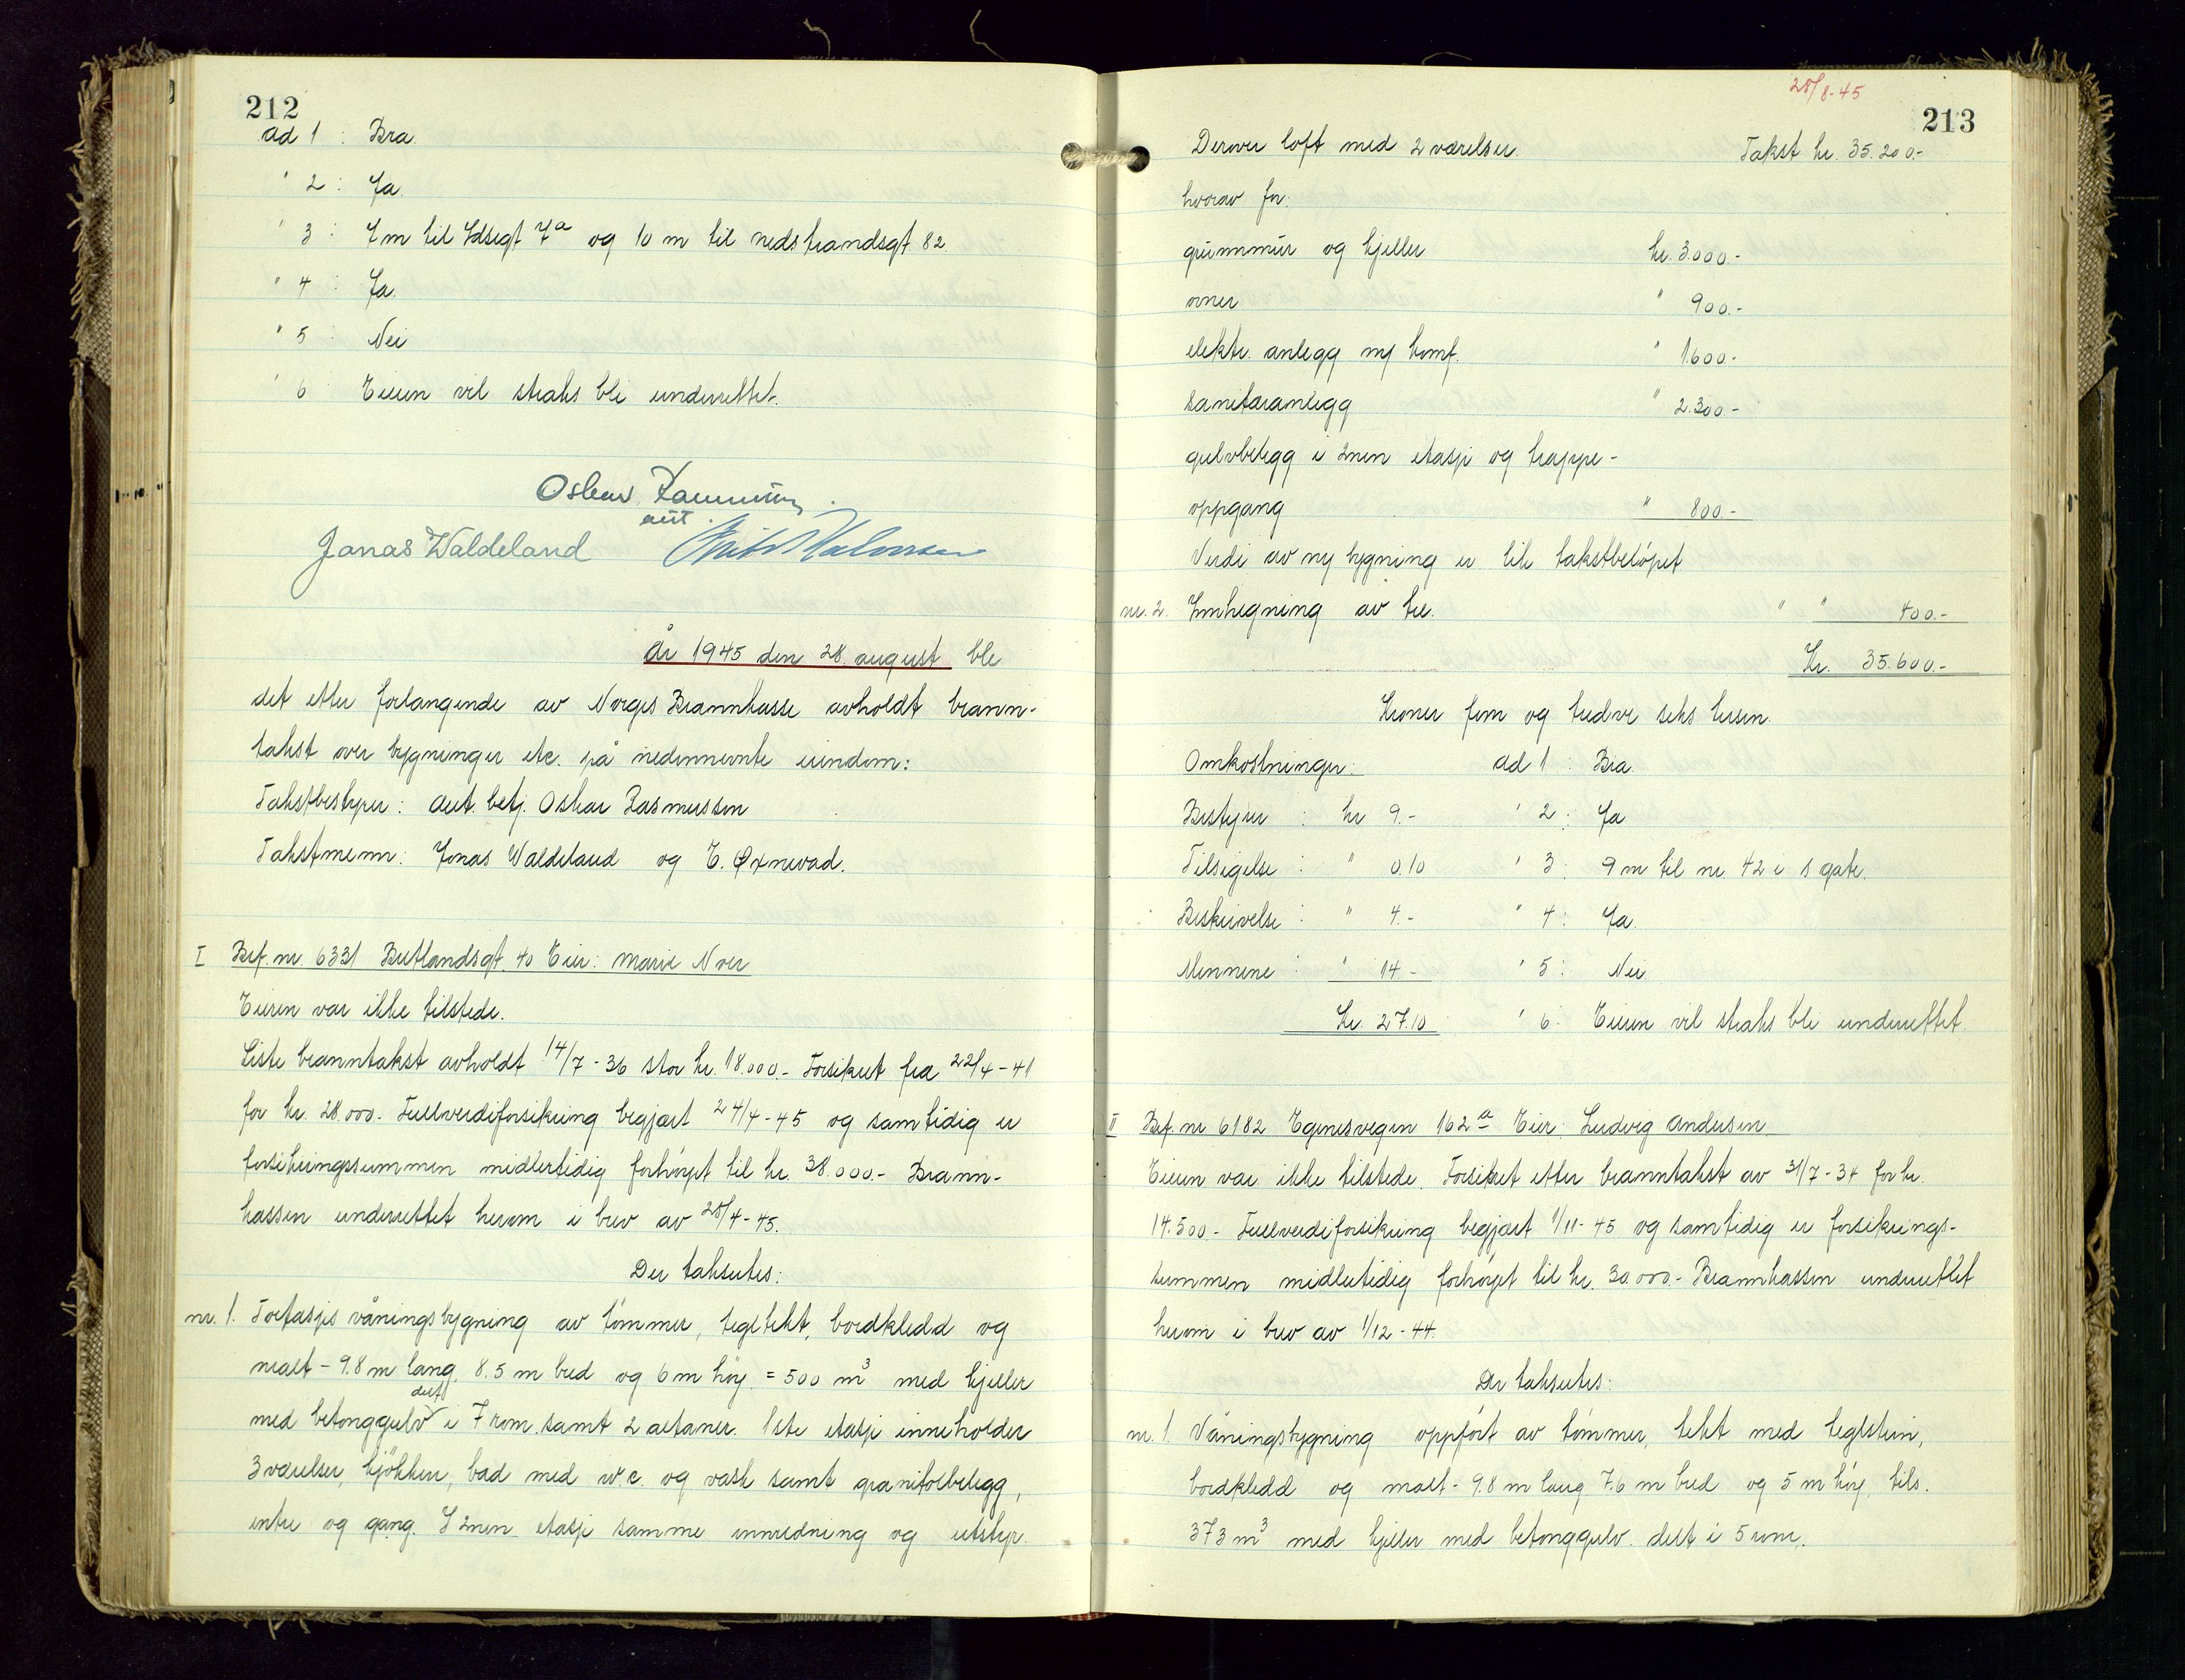 212
ad 1 : Bra
" 2 : Ja.
" 3 : 7 m til Idsegt 7a og 10 m til nedstrandsgt. 82.
" 4 : Ja.
" 5 : Nei
" 6 Eieren vil straks bli underrettet.
Oskar Rasmussen
aut.
Jonas Waldeland
År 1945 den 28. august ble
det etter forlangende av Norges Brannkasse avholdt brann-
takst over bygninger etc. på nedennevnte eiendom:
Takstbestyrer: aut. betj. Oskar Rasmussen
Takstmenn: Jonas Waldeland og E. Øxnevad.
I Bef. nr. 6331 Butlandsgt. 40 Eier: Marie Nver
Eieren var ikke tilstede.
Siste branntakst avholdt 14/7-36 stor kr. 18.000.- Forsikret fra 22/4-41
for kr. 28.000.- Fullverdiforsikring begjært 24/4-45 og samtidig er
forsikringssummen midlertidig forhöyet til kr. 38.000.- Brann-
kassen underrettet herom i brev av 25/4-45.
Der takseres:
nr. 1. Toetasjes våningsbygning av tömmer, tegltekt, bordkledd og
malt - 9.8 m lang, 8.5 m bred og 6 m höy = 500 m3 med kjeller
med betonggulv delt i 7 rom samt 2 altaner. 1ste etasje inneholder
3 værelser, kjökken, bad med w.c. og vask samt granitolbelegg,
entre og gang. I 2nen etasje samme innredning og utstyr.
28/8-45
213
Derover loft med 2 værelser. Takst kr. 35.200.-
hvorav for:
grunnmur og kjeller kr. 3.000.-
ovner " 900.-
elektr. anlegg m/ komf. " 1600.-
Sanitæranlegg " 2.300-
gulvbelegg i 2nen etasje og trappe-
oppgang " 800.-
Verdi av ny bygning er lik takstbelöpet
nr. 2. Innhegning av tre. " " 400.-
Kr. 35.600.-
Kroner fem og tredve seks hundre
Omkostninger: ad 1 : Bra
Bestyrer : kr 9.- " 2 : Ja
Tilsigelse : " 0.10 " 3 : 9 m til nr. 42 i s gate.
Beskrivelse : " 4.- " 4 : Ja.
Mennene : " 14 - " 5 : Nei.
Kr. 27.10 " 6 : Eieren vil straks bli underrettet
II Bef. nr 6182 Egenesvegen 162a Eier: Ludvig Andersen
Eieren var ikke tilstede. Forsikret etter branntakst av 31/7-34 for kr.
14.500.- Fullverdiforsikring begjært 1/11-45 og samtidig er forsikrings-
summen midlertidig forhöyet til kr. 30.000.- Brannkassen underrettet
herom i brev av 1/12-44.
Der takseres:
nr. 1. Våningsbygning oppfört av tömmer, tekt med teglstein,
bordkledd og malt - 9.8 m lang 7.6 m bred og 5 m höy, tils.
373 m3 med kjeller med betonggulv delt i 5 rom,